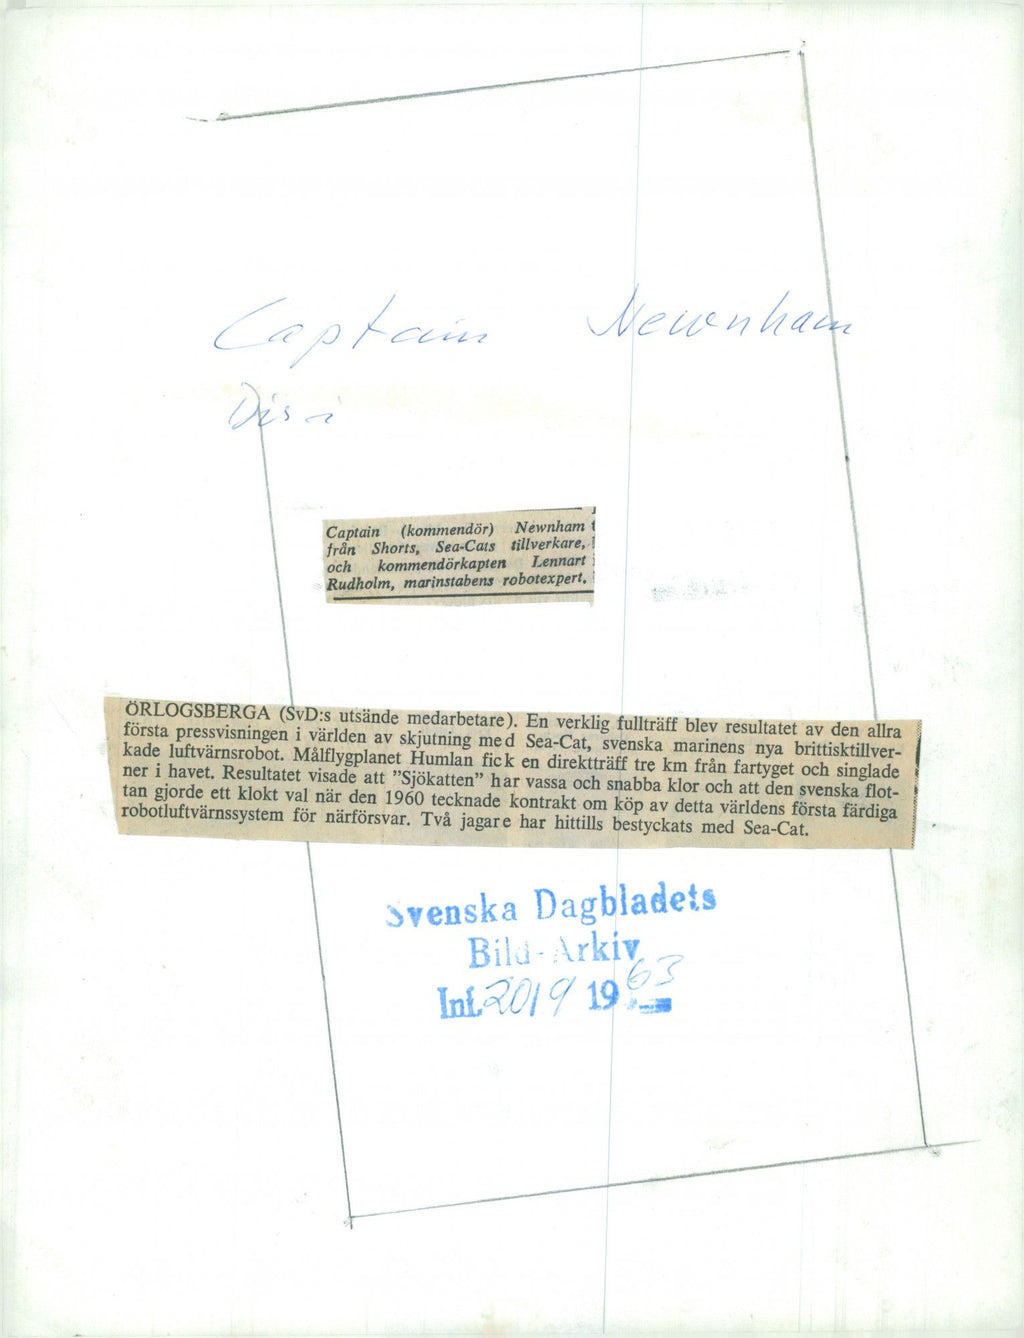 Captain Newnham
Captain (kommendör) Newnham
från Shorts, Sea-Cats tillverkare,
och kommendörkapten Lennart
Rudholm, marinstabens robotexpert,
ÖRLOGSBERGA (SvD:s utsände medarbetare). En verklig fullträff blev resultatet av den allra
första pressvisningen i världen av skjutning med Sea-Cat, svenska marinens nya brittisktillver-
kade luftvärnsrobot. Målflygplanet Humlan fick en direktträff tre km från fartyget och singlade
ner i havet. Resultatet visade att ”Sjökatten” har vassa och snabba klor och att den svenska flot-
tan gjorde ett klokt val när den 1960 tecknade kontrakt om köp av detta världens första färdiga
robotluftvärnssystem för närförsvar. Två jagare har hittills bestyckats med Sea-Cat.
Svenska Dagbladets
Bild-Arkiv
Inf. 2019 1963